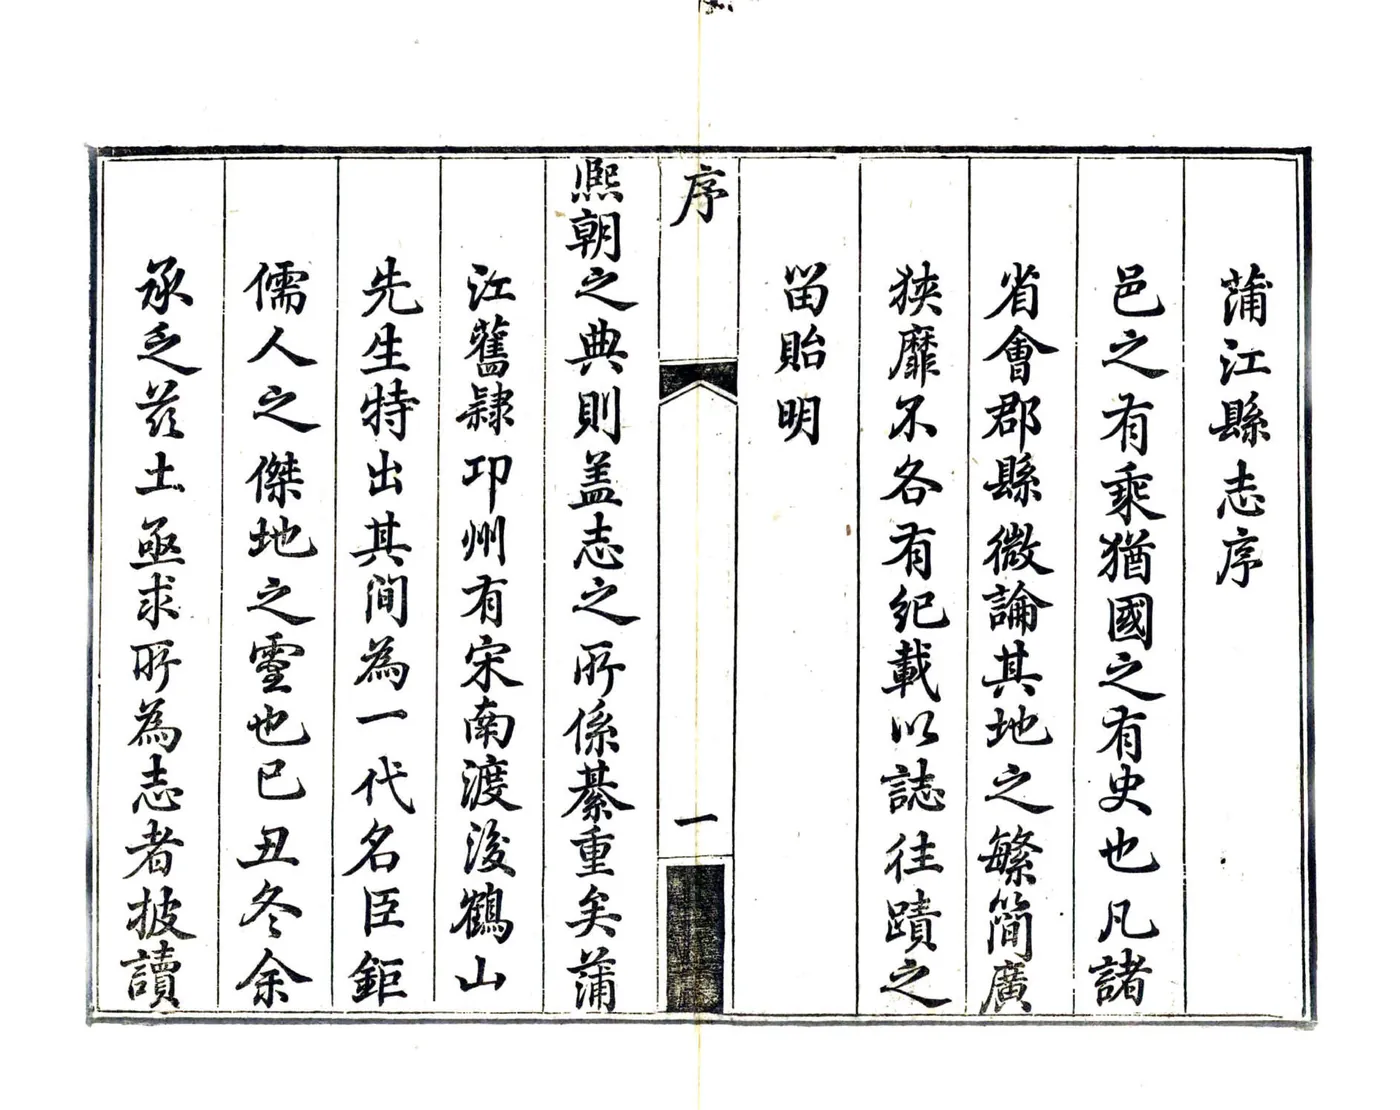 蒲江縣志序
邑之有乘猶國之有史也凡諸
省會郡縣微論其地之繁簡廣
狹靡不各有紀載以誌往蹟之
留貽明
序
一
熈朝之典則盖志之所係綦重矣蒲
江舊隸邛州有宋南渡後鶴山
先生特出其間為一代名臣鉅
儒人之傑地之靈也已丑冬余
承乏茲土亟求所為志者披讀